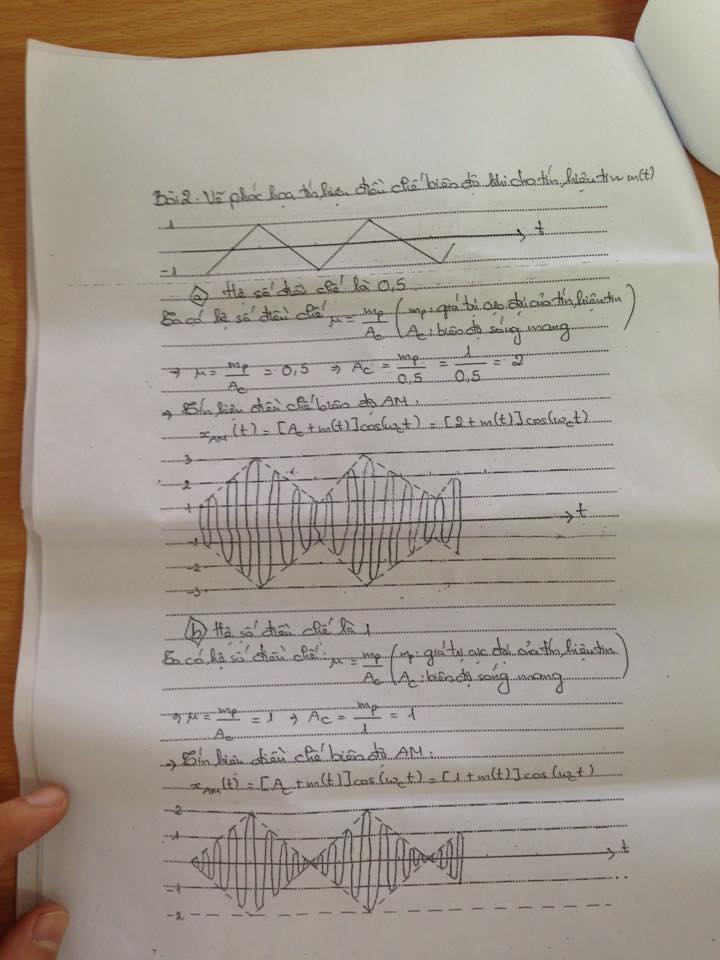 Bài 2. Vẽ phác họa tín hiệu điều chế biên độ khi cho tín hiệu tin m(t)
1
t
-1
a) Hệ số điều chế là 0,5
Ta có hệ số điều chế μ = mp/Ac (mp: giá trị cực đại của tín hiệu tin
Ac: biên độ sóng mang)
⇒ μ = mp/Ac = 0,5 ⇒ Ac = mp/0,5 = 1/0,5 = 2
⇒ Tín hiệu điều chế biên độ AM:
xAM(t) = [Ac + m(t)] cos(ωct) = [2 + m(t)] cos(ωct)
3
2
1
t
-1
-2
-3
b) Hệ số điều chế là 1
Ta có hệ số điều chế: μ = mp/Ac (mp: giá trị cực đại của tín hiệu tin
Ac: biên độ sóng mang)
⇒ μ = mp/Ac = 1 ⇒ Ac = mp/1 = 1
⇒ Tín hiệu điều chế biên độ AM:
xAM(t) = [Ac + m(t)] cos(ωct) = [1 + m(t)] cos(ωct)
2
1
t
-1
-2